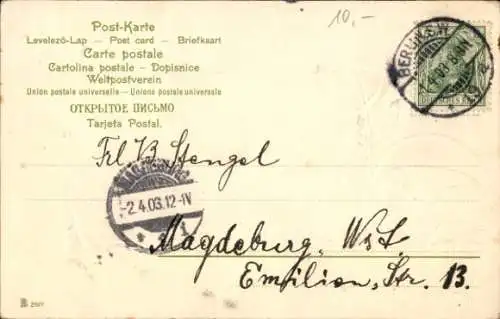 10,-
Post-Karte
Levelező-Lap — Post card — Briefkaart
Carte postale
Cartolina postale – Dopisnice
Weltpostverein
Union postale universelle — Unione postale universale
ОТКРЫТОЕ ПИСЬМО
Tarjeta Postal.
BERLIN S.W.
Frl B Stengel
MAGDEBURG
-2.4.03.12-1V
* 1
Magdeburg, W.S.
Emilien Str. 13.